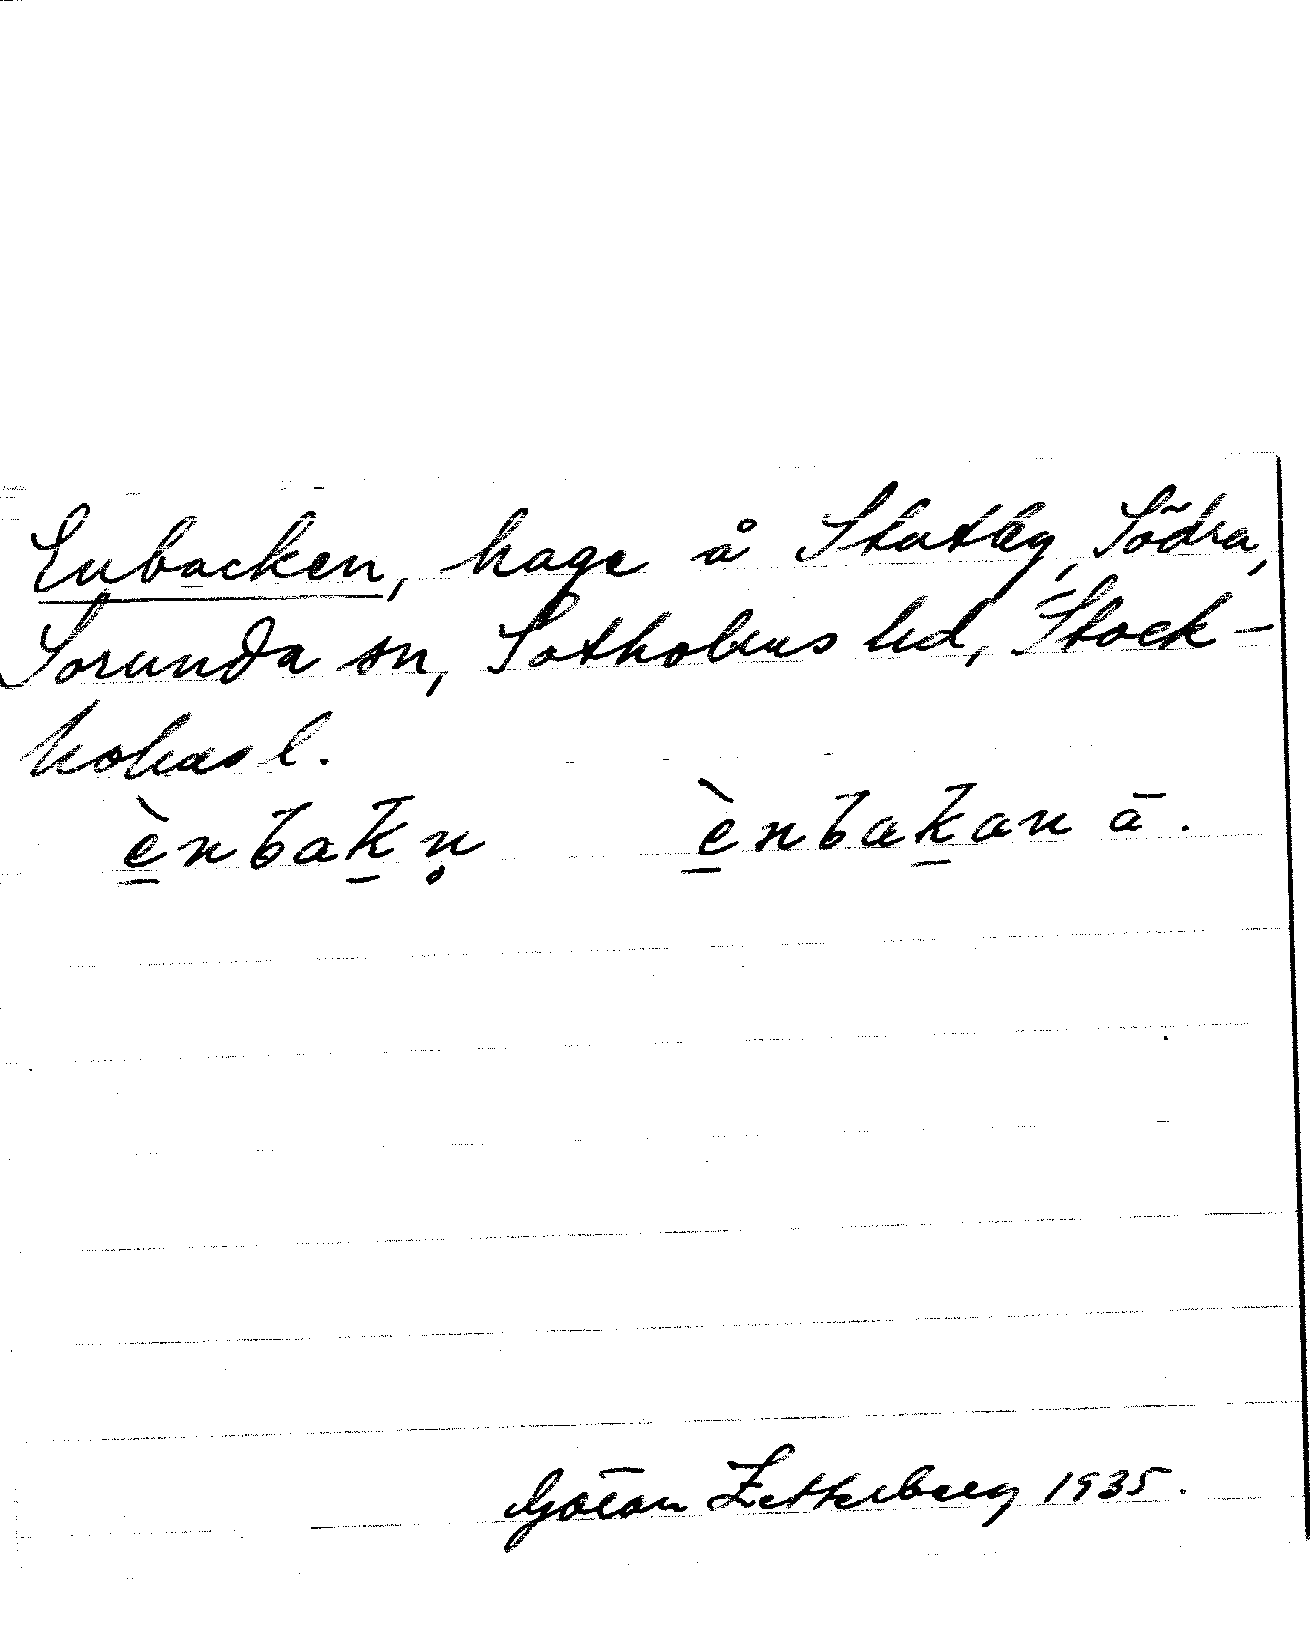 Enbacken, hage å Stutby, Södra,
Sorunda sn, Sotholms hd, Stock-
holms l.
ènbakn̥ ènbakan ā.
Göran Zetterberg 1935.